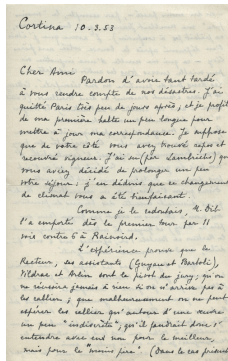 Cortina 10-3-53
Cher Ami
Pardon d'avoir tant tardé
à vous rendre compte de nos désastres. J'ai
quitté Paris très peu de jours après, et je profite
de ma première halte un peu longue pour
mettre à jour ma correspondance. Je suppose
que de votre côté vous avez trouvé repos et
recouvré vigueur. J'ai su (par Lambrichs) que
vous aviez décidé de prolonger un peu
votre séjour ; j'en déduis que ce changement
de climat vous a été bienfaisant.
Comme je le redoutais, M. Dib
l'a emporté dès le premier tour par 11
voix contre 6 à Rainoird.
L'expérience prouve que le
Recteur, ses assistants (Guyau et Bartoli),
Vildrac et Arlin sont le pivot du jury ; qu'on
ne réussira jamais à rien si on n'arrive pas à
les rallier ; que malheureusement on ne peut
espérer les rallier qu'autour d'une œuvre
un peu "médiocre" ; qu'il faudrait donc s'
entendre avec eux non pour le meilleur
mais pour le "moins pire". (Dans le cas présent